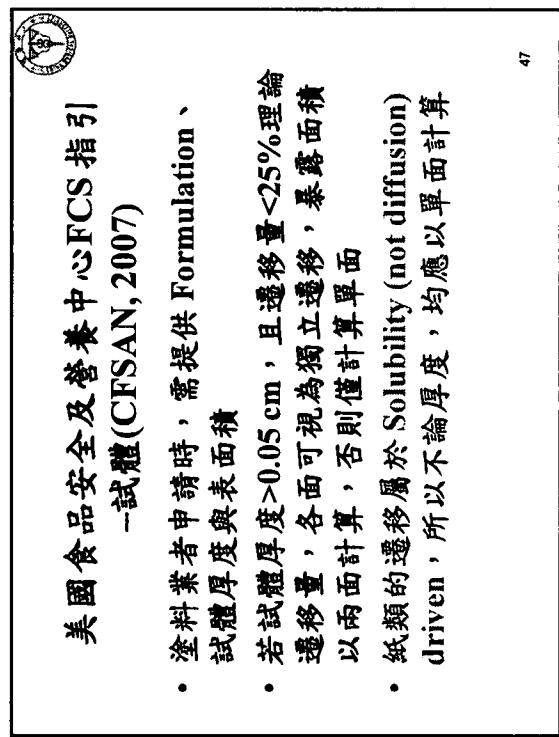 美國食品安全及營養中心FCS 指引
－試體(CFSAN, 2007)
• 塗料業者申請時，需提供 Formulation、
試體厚度與表面積
• 若試體厚度>0.05 cm，且遷移量<25%理論
遷移量，各面可視為獨立遷移，暴露面積
以兩面計算，否則僅計算單面
• 紙類的遷移屬於 Solubility (not diffusion)
driven，所以不論厚度，均應以單面計算
47